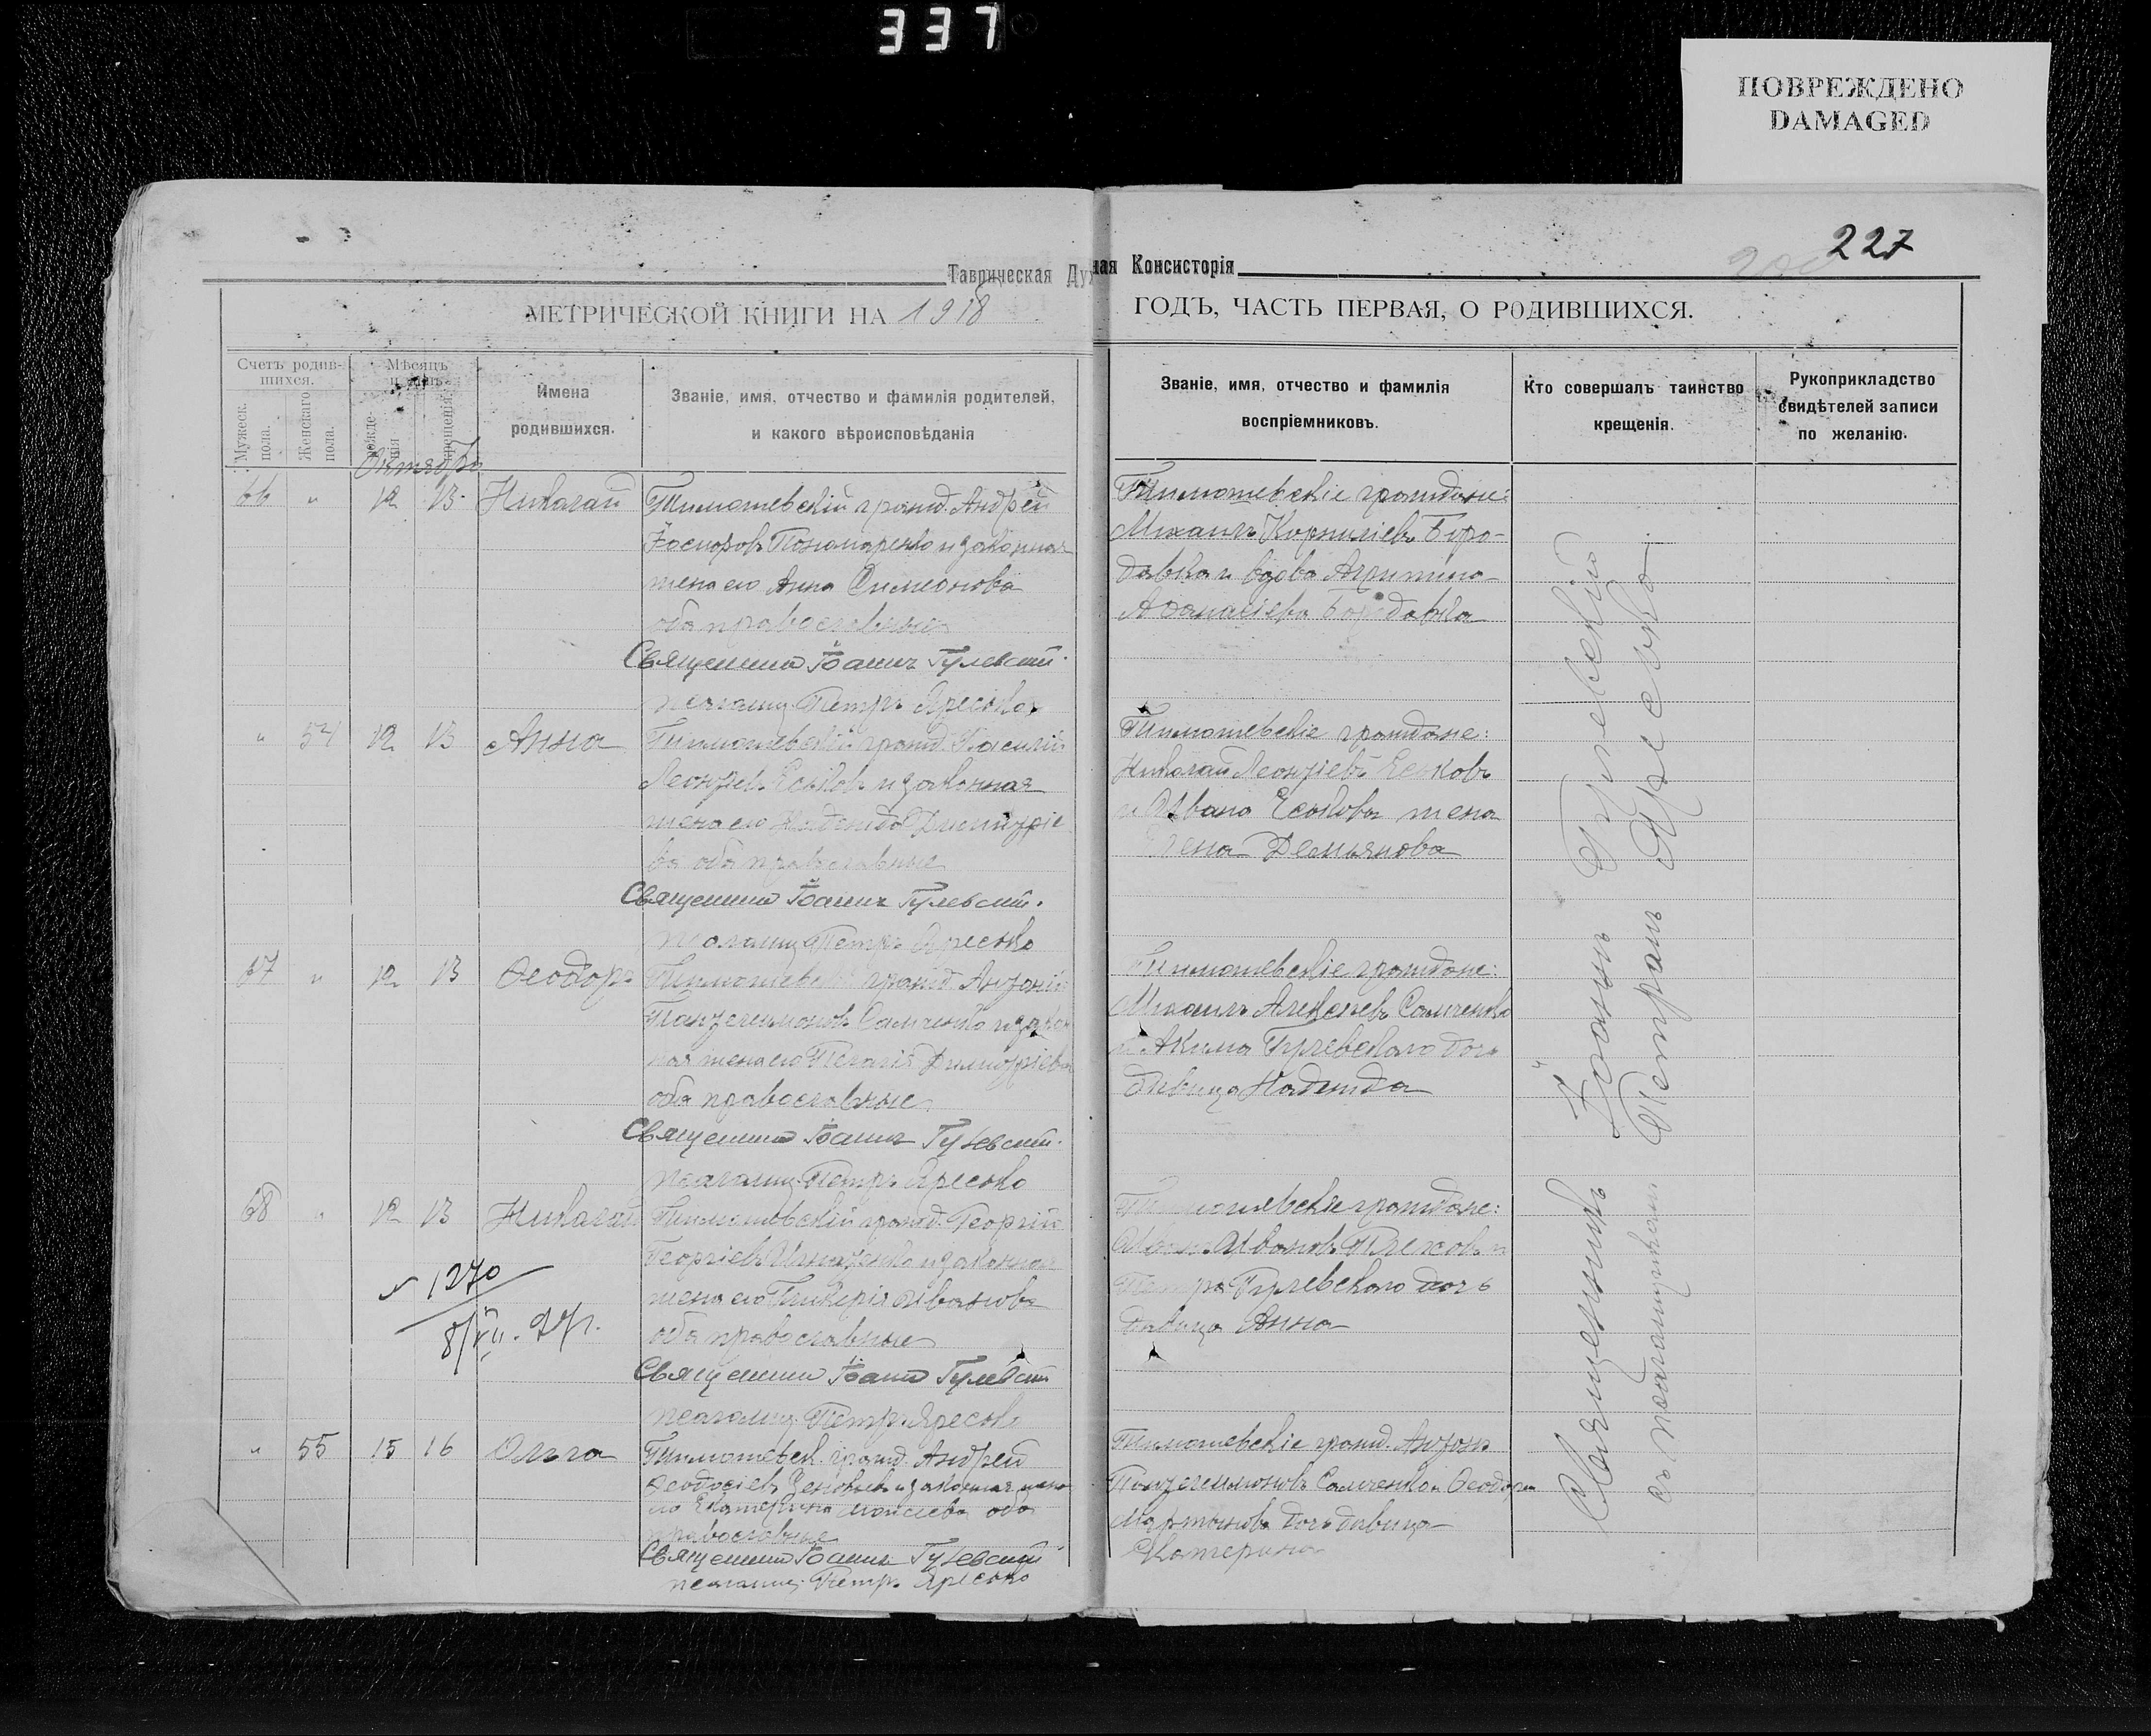 337
ПОВРЕЖДЕНО
DAMAGED
227
Таврическая Духовная Консисторія
МЕТРИЧЕСКОЙ КНИГИ НА 1918 ГОДЪ, ЧАСТЬ ПЕРВАЯ, О РОДИВШИХСЯ.
Счетъ родив-
шихся.
Мужеск. пола.
Женскаго пола.
Мѣсяцъ
крещенія.
Имена
родившихся.
Званіе, имя, отчество и фамилія родителей,
и какого вѣроисповѣданія
Званіе, имя, отчество и фамилія
воспріемниковъ.
Кто совершалъ таинство
крещенія.
Рукоприкладство
свидѣтелей записи
по желанію.
Октябрь
66 " 12 13 Николай
Тимошевскій гражд. Андрей
Пономаренко и законная
жена его Анна Симеонова
оба православные
Священник Іоаннъ Гулевский.
псаломщ. Петръ Яресько
Тимошевскіе граждане:
Михаилъ Корниліевъ Боро-
давка и вдова
Бородавка
" 54 12 13 Анна
Тимошевскій гражд. Василій
Леонтіевъ Еськовъ и законная
жена его Надежда Димитріе
ва оба православные
Священник Іоаннъ Гулевский.
псаломщ. Петръ Яресько
Тимошевскіе граждане:
Николай Леонтіевъ Еськовъ
и Ивана Еськова жена
Елена Демьянова
67 " 12 13 Ѳеодоръ
Тимошевскій гражд. Антоній
Пантелеимоновъ Самченко и закон
ная жена его Пелагія Димитріева
оба православные
Священник Іоаннъ Гулевский.
псаломщ. Петръ Яресько
Тимошевскіе граждане:
Михаилъ Алексѣевъ Самченко
и Акима Гулевскаго дочь
дѣвица Надежда
68 " 12 13 Николай
Тимошевскій гражд. Георгій
Георгіевъ Игнатенко и законная
жена его Гликерія Иванова
оба православные
Священник Іоаннъ Гулевский
псаломщ. Петръ Яресько
1270
8/XII. 27г.
Тимошевскіе граждане:
Ивановъ
Петра Гулевскаго дочь
дѣвица Анна
" 55 15 16 Ольга
Тимошевск. гражд. Андрей
Ѳеодосіевъ и законная жена
его Екатерина Моисеева оба
православные
Священник Іоаннъ Гулевский
псаломщ. Петръ Яресько
Тимошевскіе гражд. Антонъ
Пантелеимоновъ Самченко и Ѳеодора
Мартынова дочь дѣвица
Катерина
Священникъ Іоаннъ Гулевскій
съ псаломщикомъ Петромъ Яресько